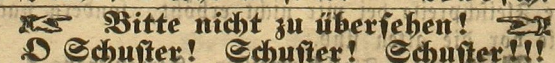 ☞ Bitte nicht zu übersehen! ☜
O Schuster! Schuster! Schuster!!!